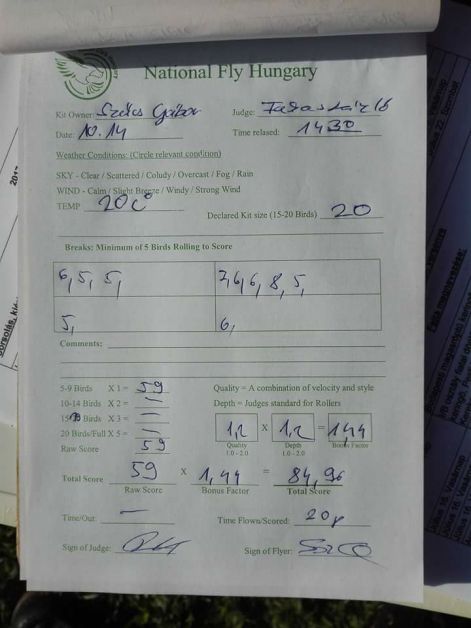 National Fly Hungary
Kit Owner: Szűcs Gábor Judge:
Date: 10.14 Time relased: 1430
Weather Conditions: (Circle relevant condition)
SKY - Clear / Scattered / Coludy / Overcast / Fog / Rain
WIND - Calm / Slight Breeze / Windy / Strong Wind
TEMP 20C° Declared Kit size (15-20 Birds) 20
Breaks: Minimum of 5 Birds Rolling to Score
6, 5, 5, 6, 6, 8, 5,
5, 6,
Comments:
5-9 Birds X 1 = 59 Quality = A combination of velocity and style
10-14 Birds X 2 = — Depth = Judges standard for Rollers
Birds X 3 = —
20 Birds/Full X 5 = — 1,2 X 1,2 = 1,44
Raw Score 59 Quality Depth Bonus Factor
1.0 - 2.0 1.0 - 2.0
Total Score 59 X 1,44 = 84,96
Raw Score Bonus Factor Total Score
Time/Out: — Time Flown/Scored: 20p
Sign of Judge: Sign of Flyer: